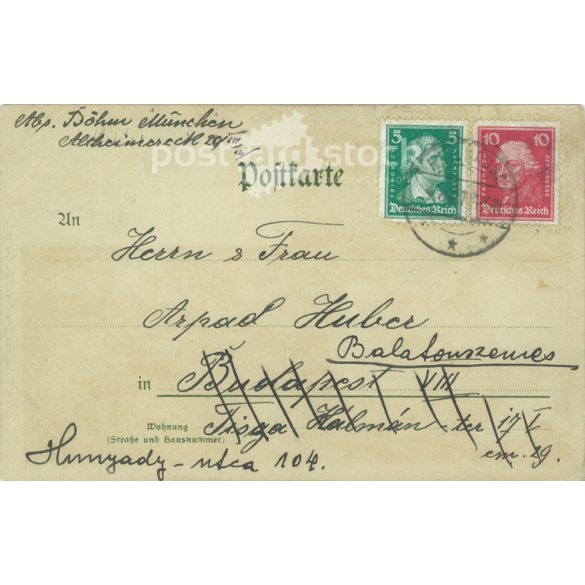 Abs. Böhm München
Altheimereck 20/III
postcard.store
Postkarte
5 5
FRIEDRICH
Deutsches Reich
10 10
FRIEDRICH DER GROSSE
Deutsches Reich
An
Herrn & Frau
Arpad Huber
Balatonszemes
in Budapest VIII
Wohnung
(Straße und Hausnummer)
Tisza Kálmán-ter 17 I
em. 29.
Hunyady-utca 104.